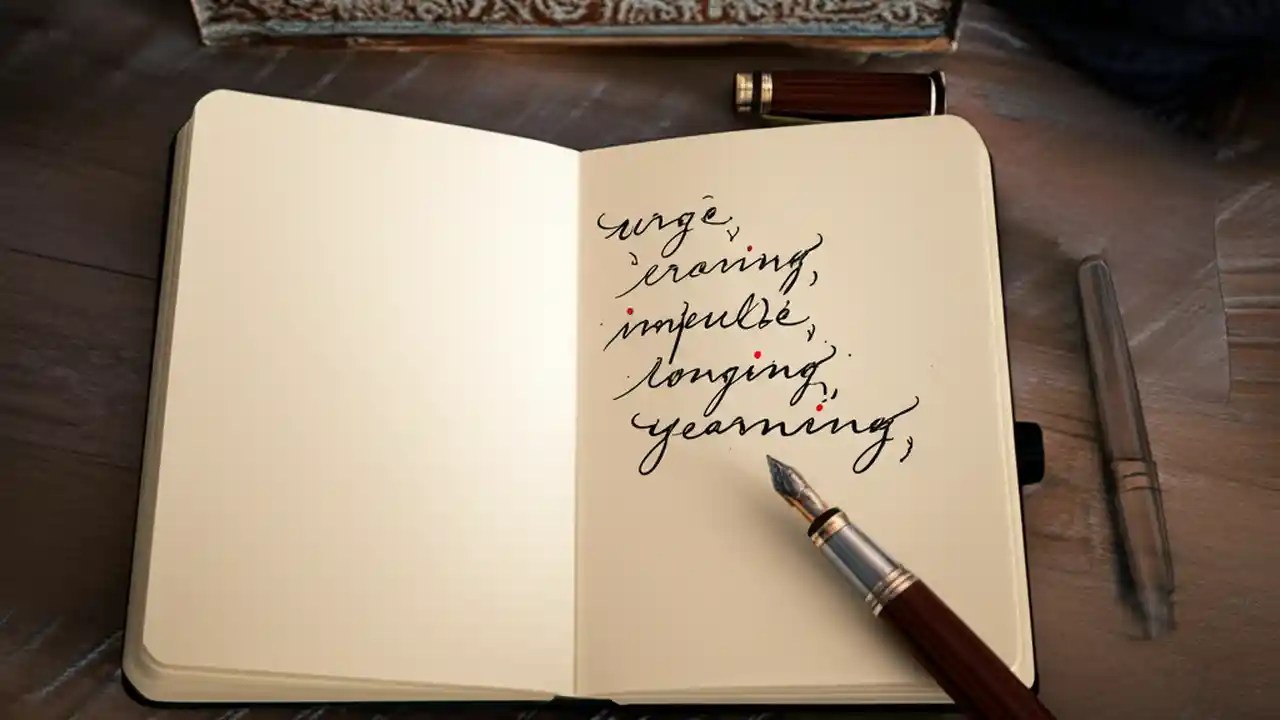 urge,
craving,
impulse,
longing,
yearning,